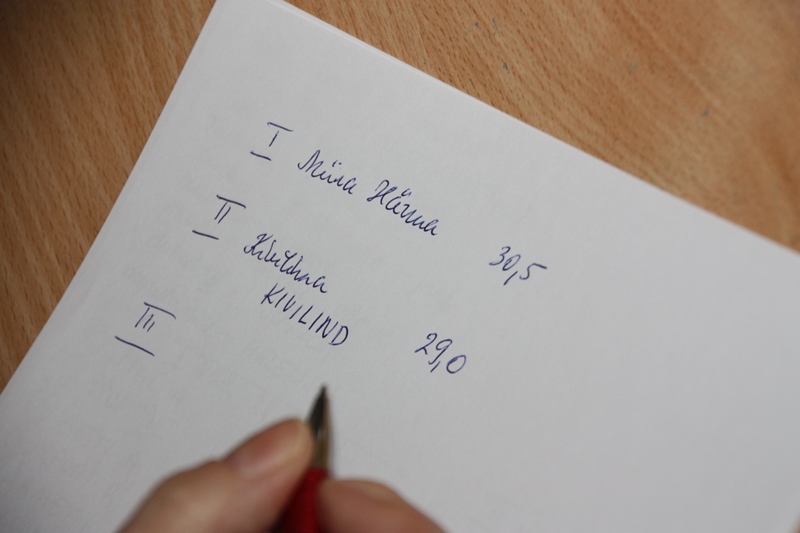 I Miina Härma 30,5
II Kristiina
KIVILIND 29,0
III